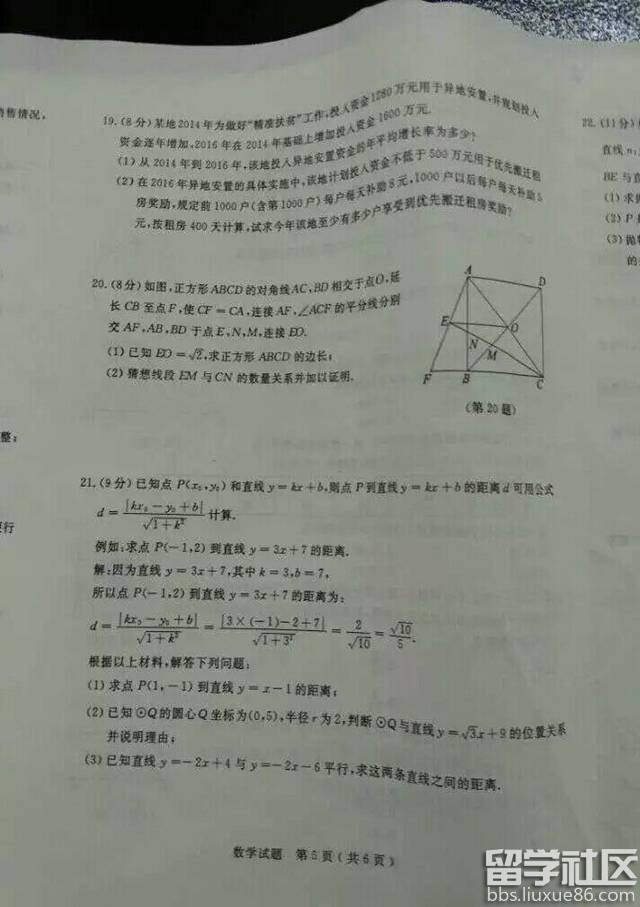 售情况,
19.(8分)某地2014年为做好“精准扶贫”工作,投入资金1280万元用于异地安置,并规划投入
资金逐年增加,2016年在2014年基础上增加投入资金1600万元.
(1)从2014年到2016年,该地投入异地安置资金的年平均增长率为多少?
(2)在2016年异地安置的具体实施中,该地计划投入资金不低于500万元用于优先搬迁租
房奖励,规定前1000户(含第1000户)每户每天补助8元,1000户以后每户每天补助5
元,按租房400天计算,试求今年该地至少有多少户享受到优先搬迁租房奖励?
20.(8分)如图,正方形ABCD的对角线AC,BD相交于点O,延
长CB至点F,使CF=CA,连接AF,∠ACF的平分线分别
交AF,AB,BD于点E,N,M,连接EO.
(1)已知EO=√2,求正方形ABCD的边长;
(2)猜想线段EM与CN的数量关系并加以证明.
A
D
E
O
N
M
F
B
C
(第20题)
整;
行
21.(9分)已知点P(x₀,y₀)和直线y=kx+b,则点P到直线y=kx+b的距离d可用公式
d=|kx₀-y₀+b|/√(1+k²)计算.
例如:求点P(-1,2)到直线y=3x+7的距离.
解:因为直线y=3x+7,其中k=3,b=7,
所以点P(-1,2)到直线y=3x+7的距离为:
d=|kx₀-y₀+b|/√(1+k²)=|3×(-1)-2+7|/√(1+3²)=2/√10=√10/5.
根据以上材料,解答下列问题:
(1)求点P(1,-1)到直线y=x-1的距离;
(2)已知⊙Q的圆心Q坐标为(0,5),半径r为2,判断⊙Q与直线y=√3x+9的位置关系
并说明理由;
(3)已知直线y=-2x+4与y=-2x-6平行,求这两条直线之间的距离.
数学试题 第5页(共6页)
22.(11分)
直线n:
BE与直
(1)求抛
(2)P是
(3)抛物
的
留学社区
bbs.liuxue86.com